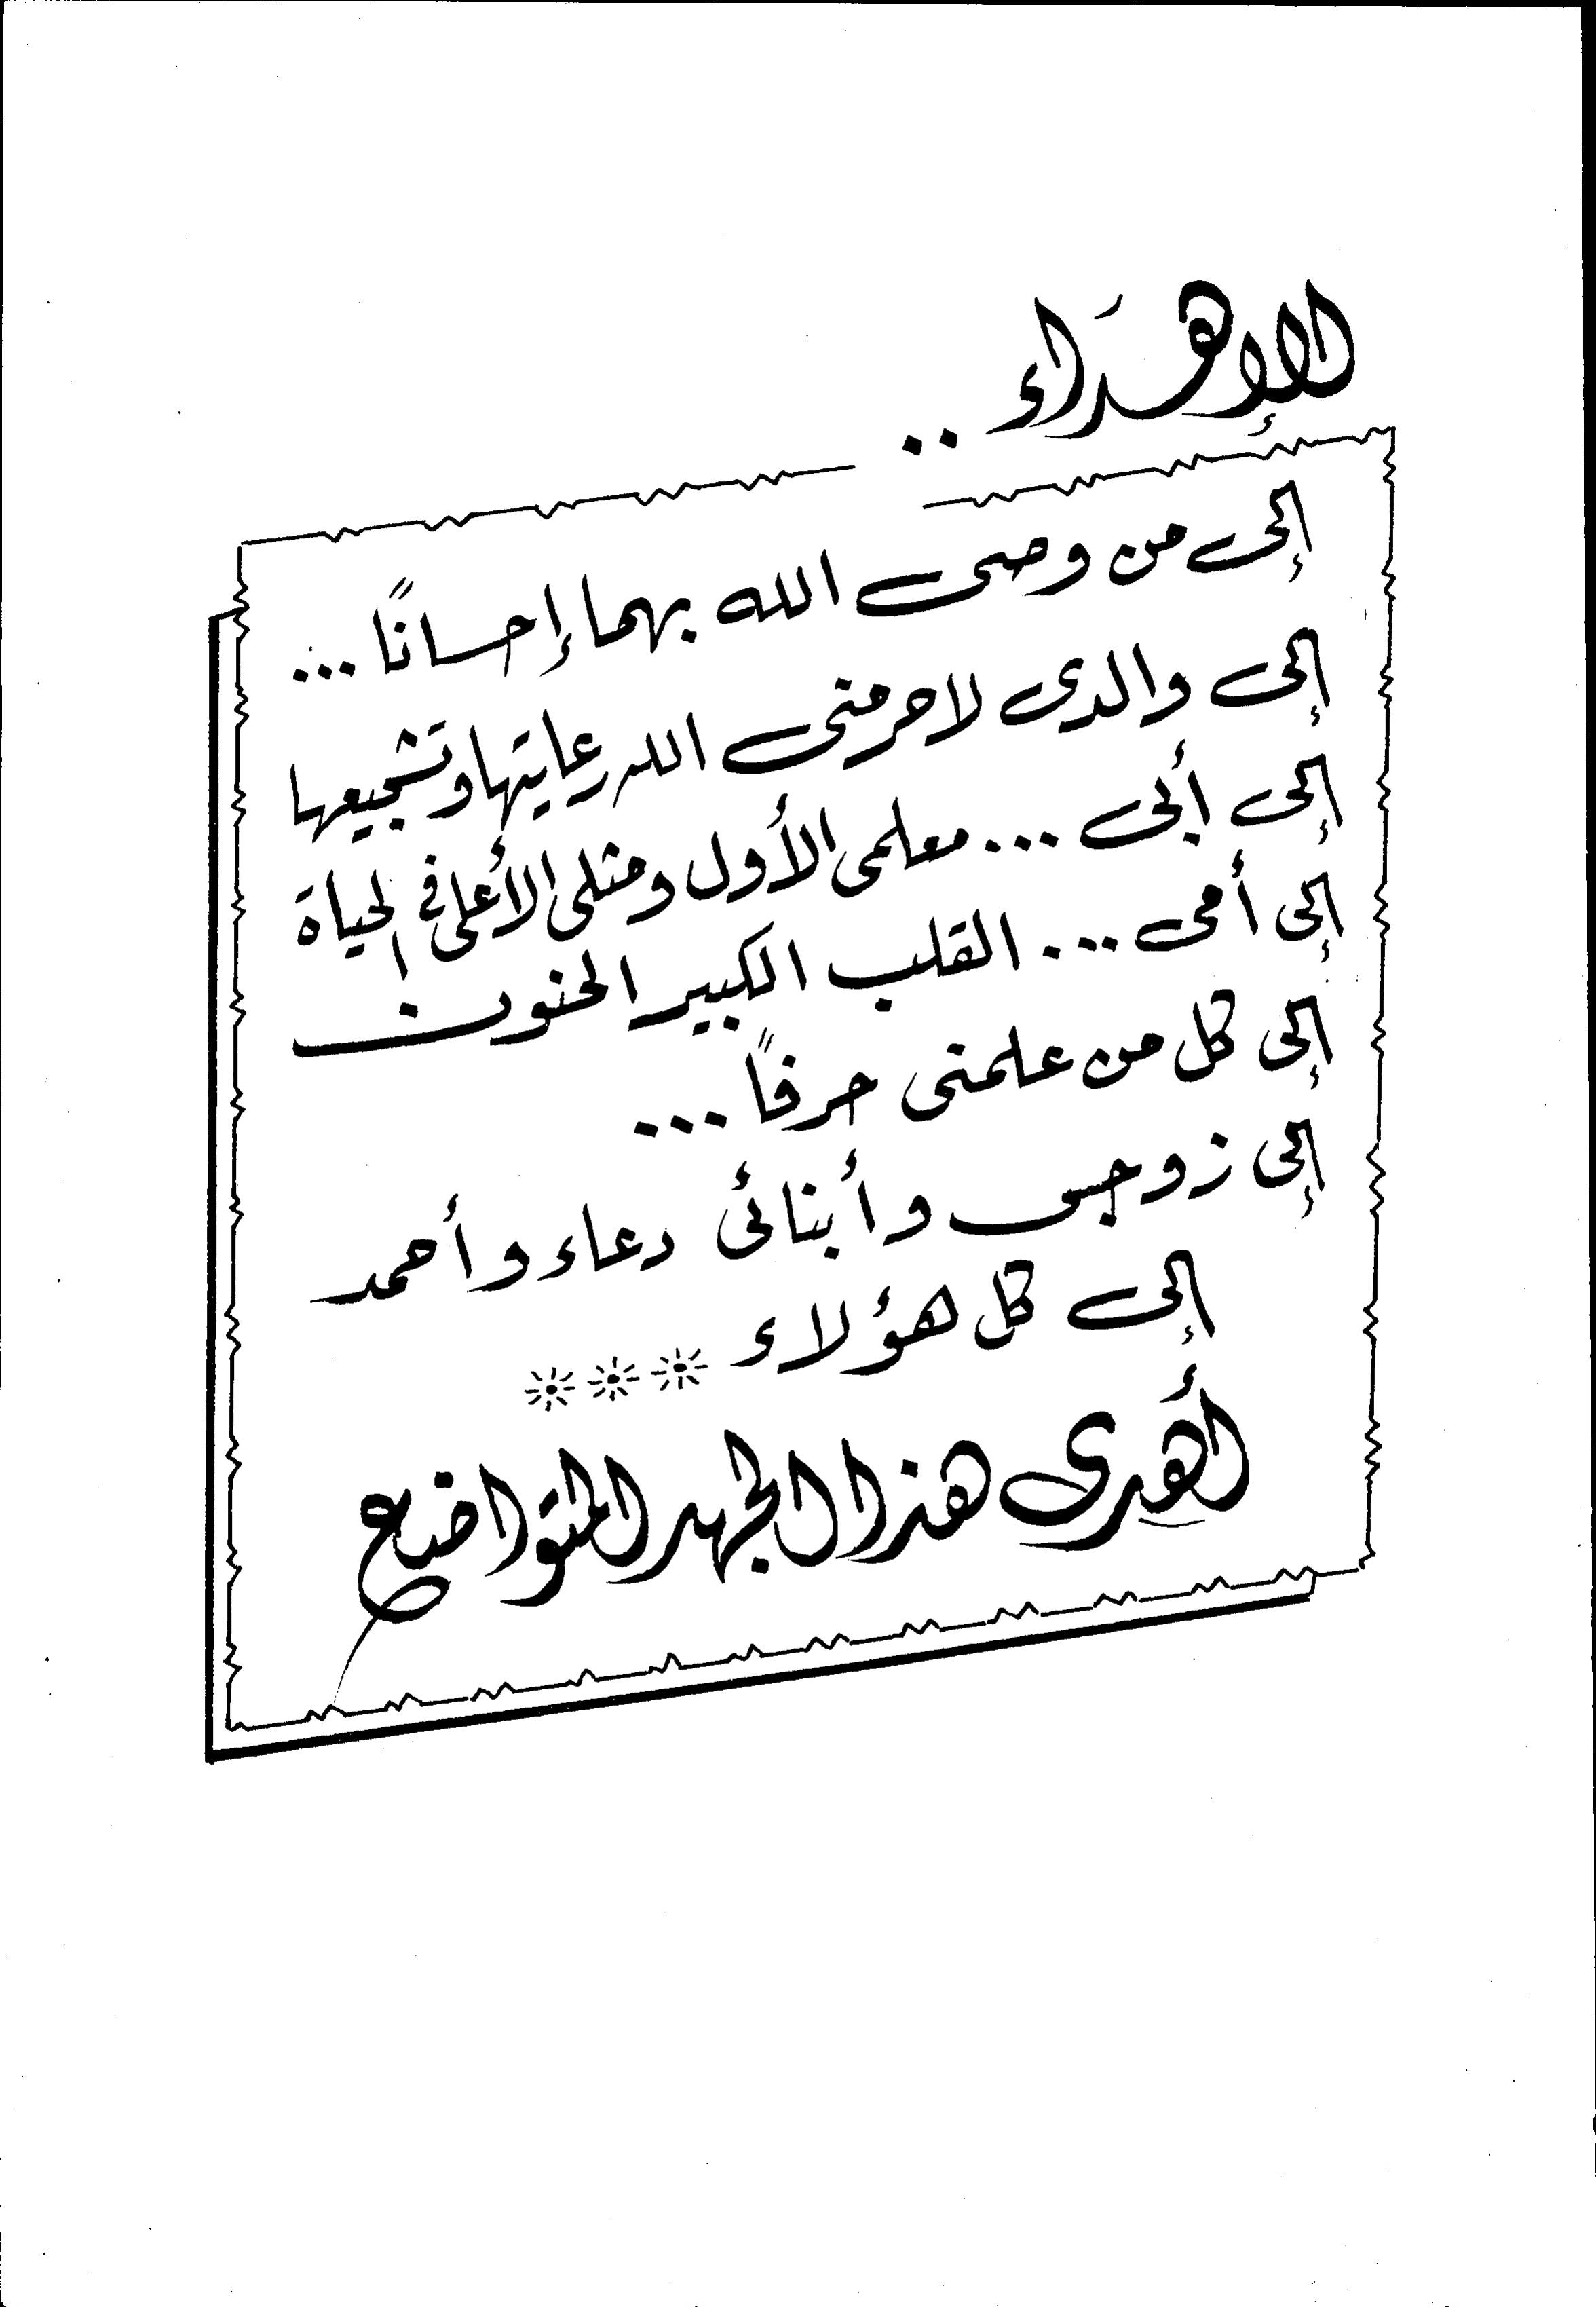 الإهدَاء ..
إلى من وصى الله بهما إحساناً ...
إلى والدى لاحرمنى الله رعايتها وتشجيعها
إلى أبى ... معلمى الأول ومثلى الأعلى فى الحياة
إلى أمى ... القلب الكبير الحنون
إلى كل من علمنى حرفاً ...
إلى زوجى وأبنائى دعاء وأحمد
إلى كل هؤلاء
أهدى هذا الجهد المتواضع